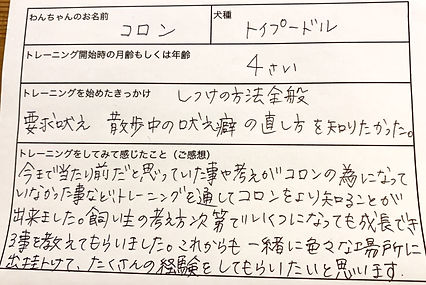 わんちゃんのお名前 犬種
コロン トイプードル
トレーニング開始時の月齢もしくは年齢
4さい
トレーニングを始めたきっかけ しつけの方法全般
要求吠え 散歩中の吠え癖の直し方を知りたかった。
トレーニングをしてみて感じたこと(ご感想)
今まで当たり前だと思っていた事や考えがコロンの為になって
いなかった事などトレーニングを通してコロンをより知ることが
出来ました。飼い主の考え方次第でいくつになっても成長でき
る事を教えてもらいました。これからも一緒に色々な場所に
出掛けて、たくさんの経験をしてもらいたいと思います.